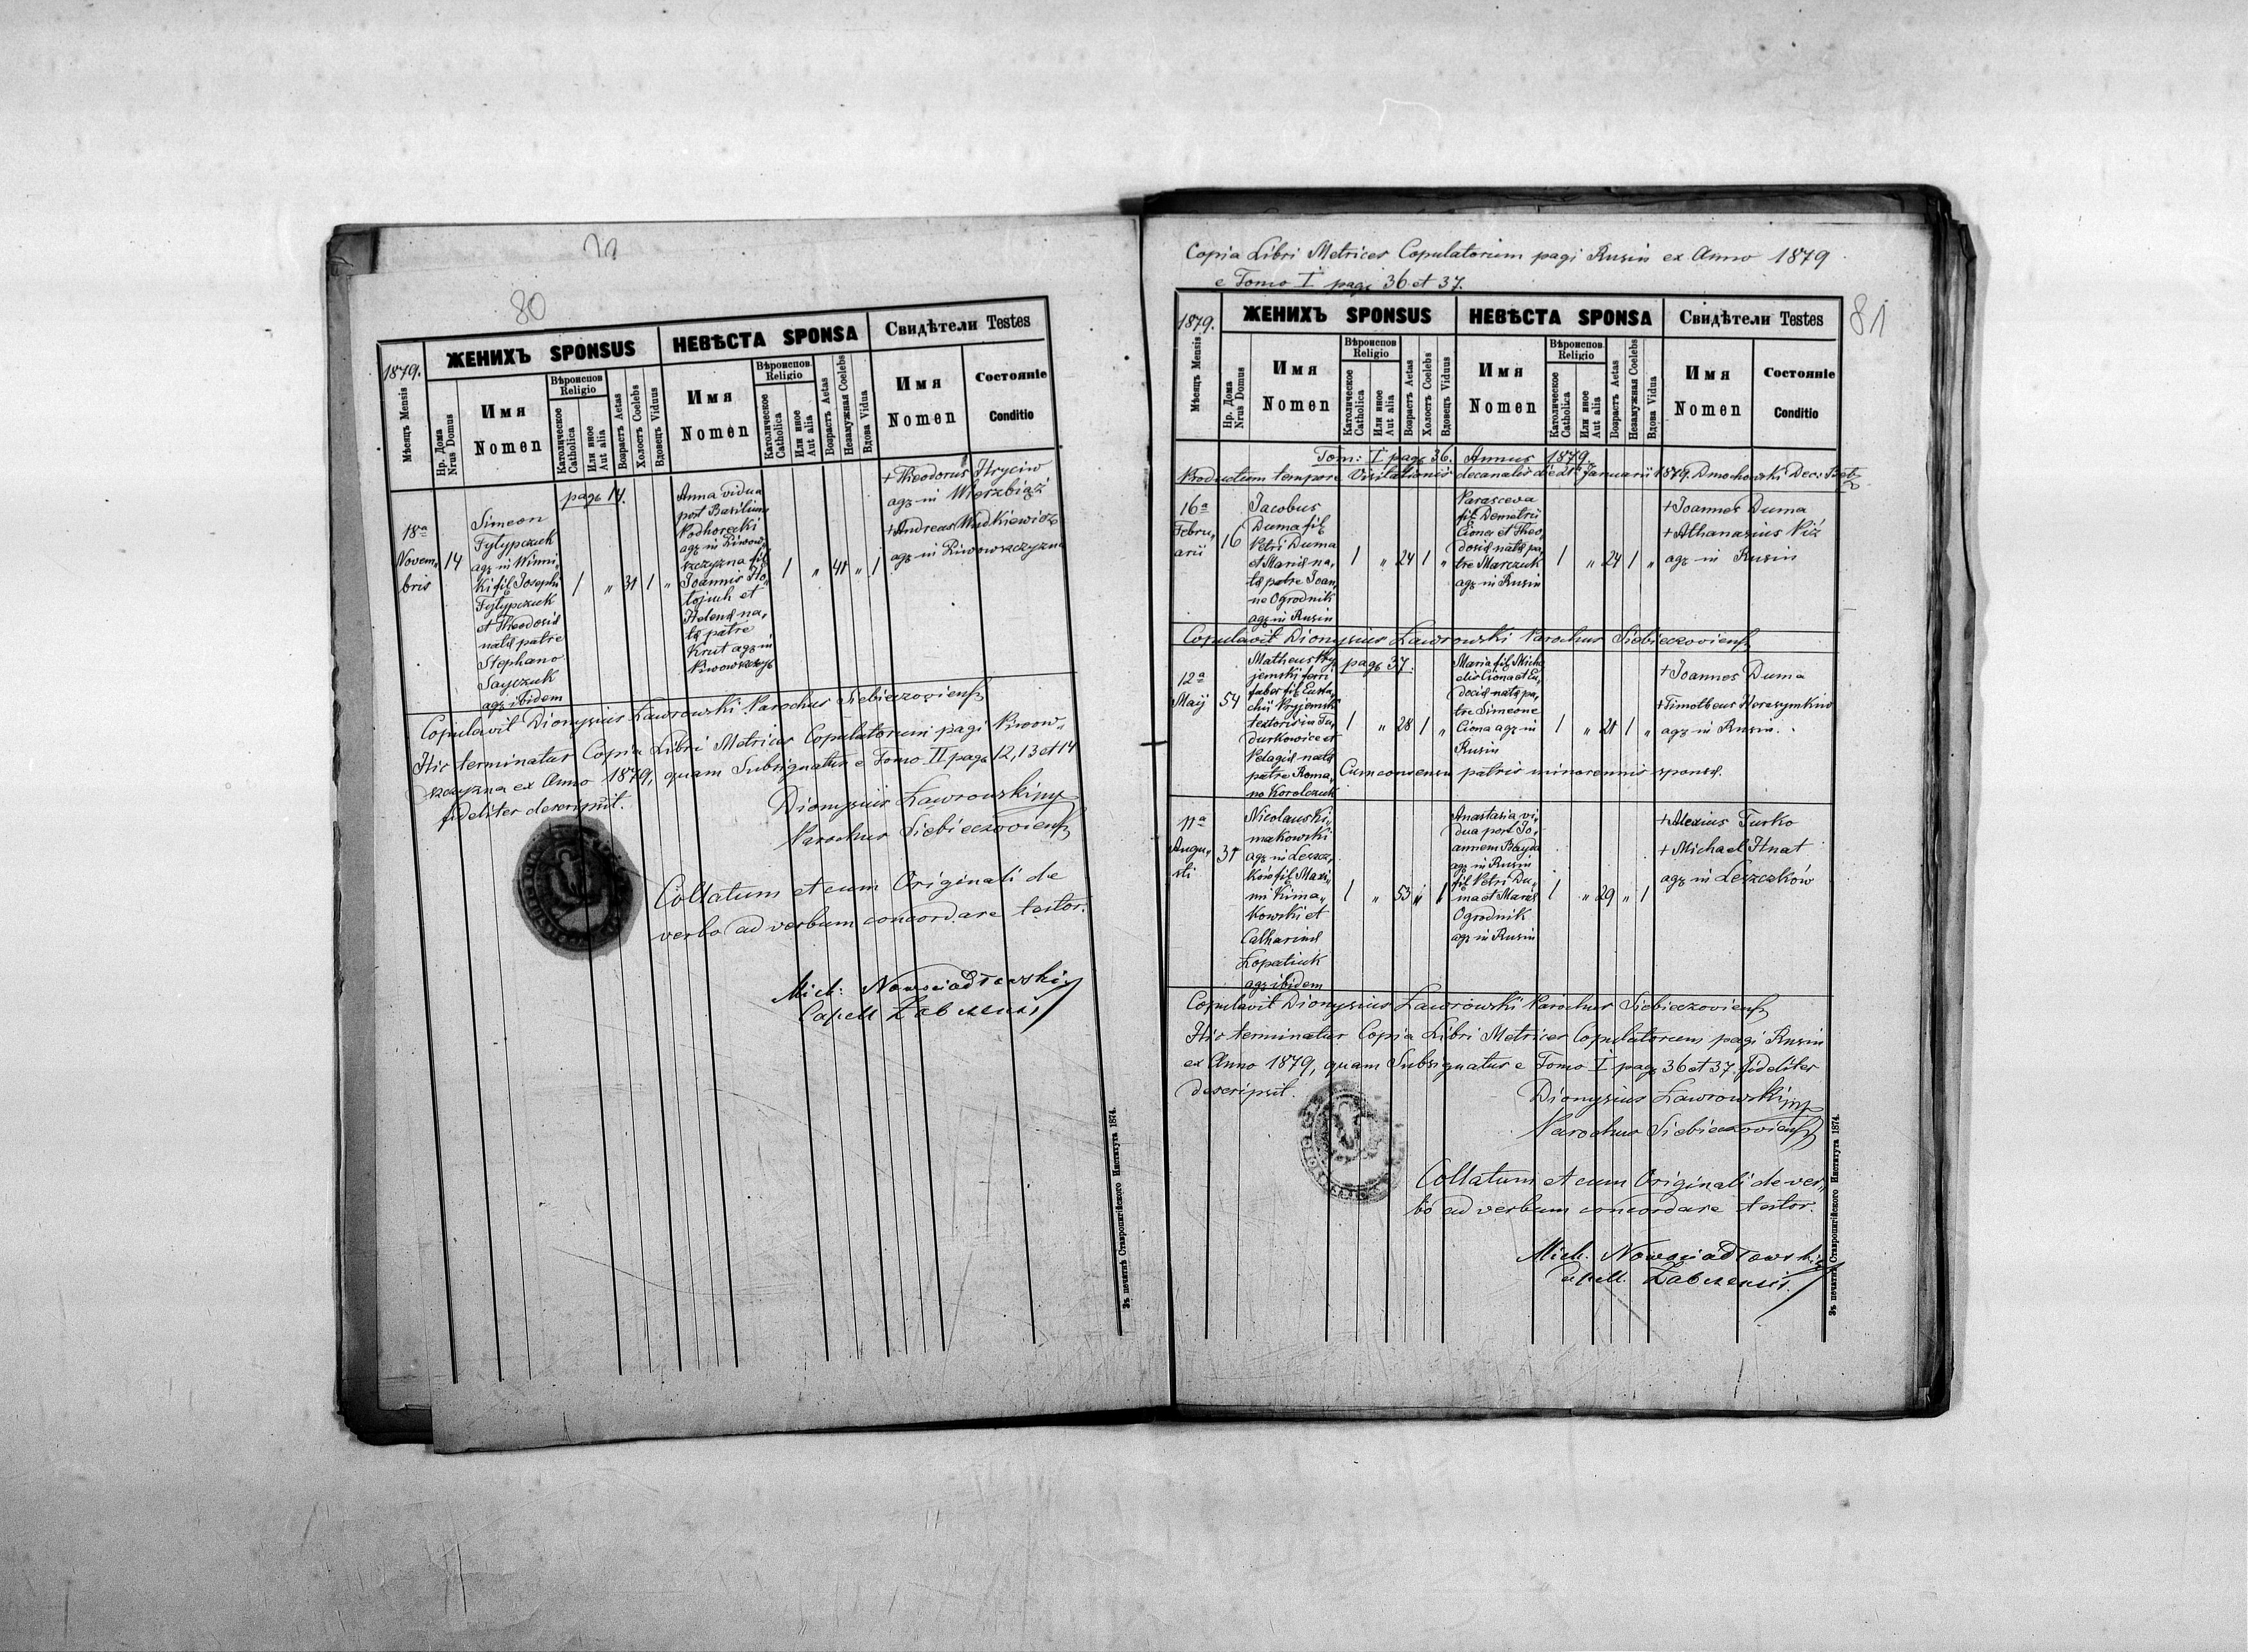 79
80
1879.
Мѣсяцъ Mensis
ЖЕНИХЪ SPONSUS
НЕВѢСТА SPONSA
Свидѣтели Testes
Нр. Дома
Nrus Domus
Имя
Nomen
Вѣроиспов.
Religio
Католическое
Catholica
Или иное
Aut alia
Возрастъ Aetas
Холостъ Coelebs
Вдовецъ Viduus
Имя
Nomen
Вѣроиспов.
Religio
Католическое
Catholica
Или иное
Aut alia
Возрастъ Aetas
Незамужная Coelebs
Вдова Vidua
Имя
Nomen
Состояніе
Conditio
pag. 14.
18ª
Novem„
bris
14
Simeon
Fylypczuk
agr. in Winni„
ki fil. Josephi
Fylypczuk
et Theodosiæ
natæ patre
Stephano
Sayczuk
agr. ibidem
1 „ 31 1 „
Anna vidua
post Basilium
Podhorecki
agr. in Piwow„
szczyzna fil.
Joannis Ho„
tojuch et
Helenæ na„
tæ patre
Krut agr. in
Piwowszczyz.
1 „ 41 „ 1
+Theodorus Hryciw
agr. in Wierzbiąż
+Andreas Wudkiewicz
agr. in Piwowszczyzna
Copulavit Dionysius Ławrowski Parochus Siebieczoviens.
Hic terminatur Copia Libri Metrices Copulatorum pagi Piwow„
szczyzna ex Anno 1879, quam Subsignatus e Tomo II pag. 12, 13 et 14
fideliter descripsit.
Dionysius Ławrowski mp
Parochus Siebieczoviens.
Collatum et cum Originali de
verbo ad verbum concordare testor.
Mich: Nowosiadłowski
Capell Żabcensis
Зъ печатнѣ Ставропигійского Института 1874.
Copia Libri Metrices Copulatorum pagi Rusin ex Anno 1879
e Tomo I pag. 36 et 37.
81
1879.
Мѣсяцъ Mensis
ЖЕНИХЪ SPONSUS
НЕВѢСТА SPONSA
Свидѣтели Testes
Нр. Дома
Nrus Domus
Имя
Nomen
Вѣроиспов.
Religio
Католическое
Catholica
Или иное
Aut alia
Возрастъ Aetas
Холостъ Coelebs
Вдовецъ Viduus
Имя
Nomen
Вѣроиспов.
Religio
Католическое
Catholica
Или иное
Aut alia
Возрастъ Aetas
Незамужная Coelebs
Вдова Vidua
Имя
Nomen
Состояніе
Conditio
Tom: I pag. 36. Annus 1879.
Productum tempore Visitationis decanalis die Januarii 1879. Dmochowski Dec.
16ª
Febru„
arii
16
Jacobus
Duma fil.
Petri Duma
et Mariæ na„
tæ patre Joan„
ne Ogrodnik
agr. in Rusin
1 „ 24 1 „
Parasceva
fil. Demetrii
Ciona et Theo„
dosiæ natæ pa„
tre Marczuk
agr. in Rusin
1 „ 24 1 „
+Joannes Duma
+Athanasius Niż
agr. in Rusin
Copulavit Dionysius Ławrowski Parochus Siebieczoviens.
pag. 37.
12ª
Maij
54
Matheus Pry„
jemski ferri
faber fil. Eusta„
chii Pryjemski
textoris in Tu„
durkowice et
Pelagiæ natæ
patre Roma„
no Korolczuk
1 „ 28 1 „
Maria fil. Micha„
elis Ciona et Eu„
dociæ natæ pa„
tre Simeone
Ciona agr. in
Rusin
1 „ 21 1 „
+Joannes Duma
+Timotheus Herasymkiw
agr. in Rusin.
Cum consensu patris minorennis sponsæ.
11ª
Augu„
sti
31
Nicolaus Ki„
makowski
agr. in Leszcz„
kow fil. Maxi„
mi Kima„
kowski et
Catharinæ
Łopatiuk
agr. ibidem
1 „ 53 „ 1
Anastasia vi„
dua post Jo„
annem Bayda
agr. in Rusin
fil. Petri Du„
ma et Mariæ
Ogrodnik
agr. in Rusin
1 „ 29 „ 1
+Alexius Turko
+Michael Hnat
agr. in Leszczków
Copulavit Dionysius Ławrowski Parochus Siebieczoviens.
Hic terminatur Copia Libri Metrices Copulatorum pagi Rusin
ex Anno 1879, quam Subsignatus e Tomo I pag. 36 et 37 fideliter
descripsit.
Dionysius Ławrowski mp
Parochus Siebieczoviens.
Collatum et cum Originali de ver„
bo ad verbum concordare testor.
Mich. Nowosiadłowski
Capell. Żabcensis.
Зъ печатнѣ Ставропигійского Института 1874.